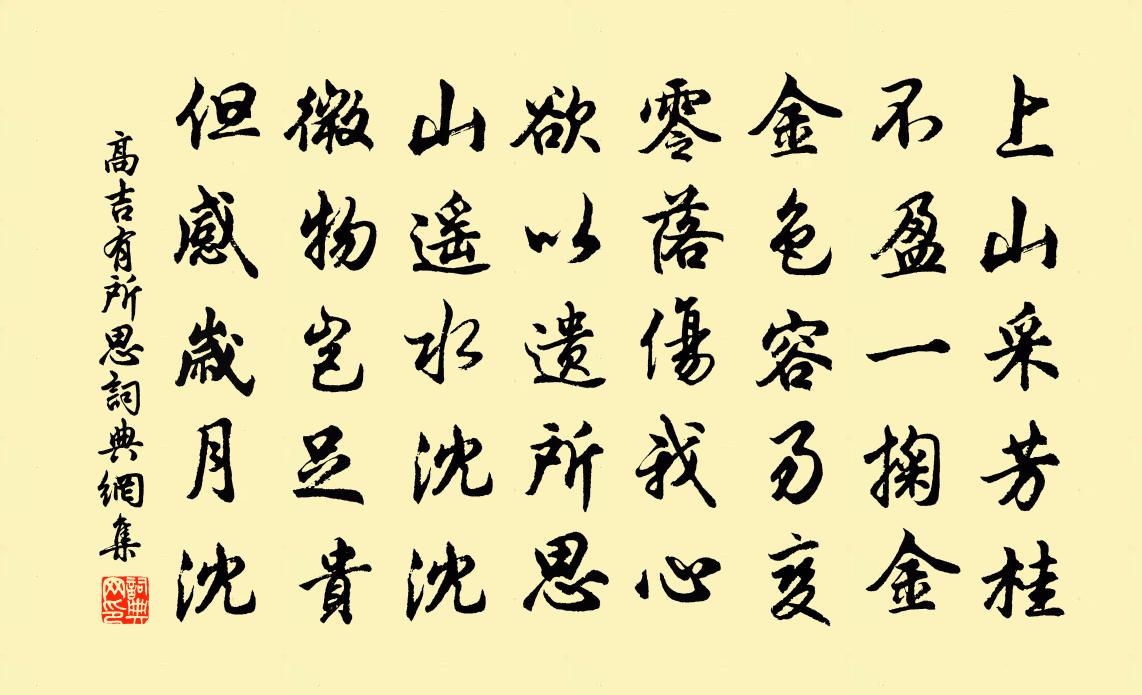 上山采芳桂
不盈一掬金
金色容易变
零落傷我心
欲以遗所思
山遥水沈沈
微物岂足貴
但感歲月沈
高吉有所思詞典網集
詞典網印